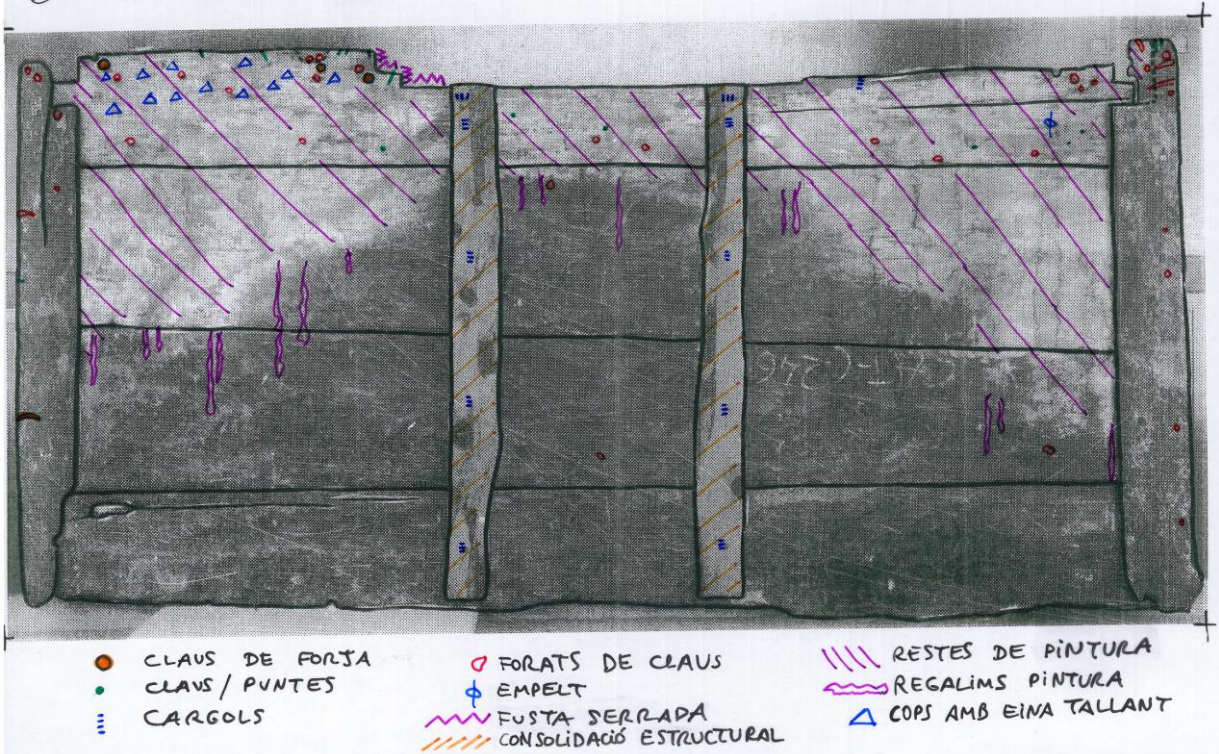 CLAUS DE FORJA
CLAUS / PUNTES
CARGOLS
FORATS DE CLAUS
EMPELT
FUSTA SERRADA
CONSOLIDACIÓ ESTRUCTURAL
RESTES DE PINTURA
REGALIMS PINTURA
COPS AMB EINA TALLANT